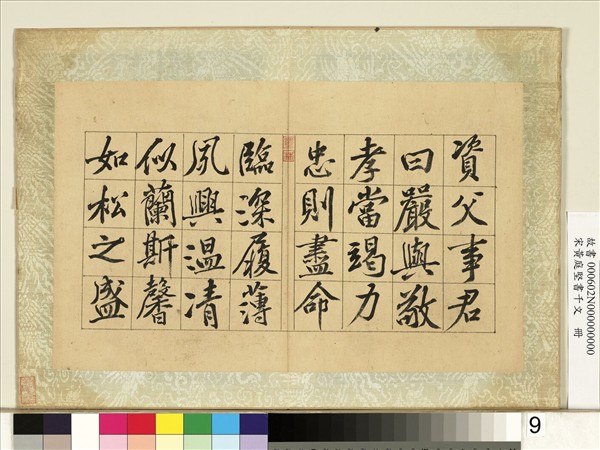 資父事君
曰嚴與敬
孝當竭力
忠則盡命
臨深履薄
夙興温凊
似蘭斯馨
如松之盛
故書 000602N000000000
宋黃庭堅書千文 冊
9